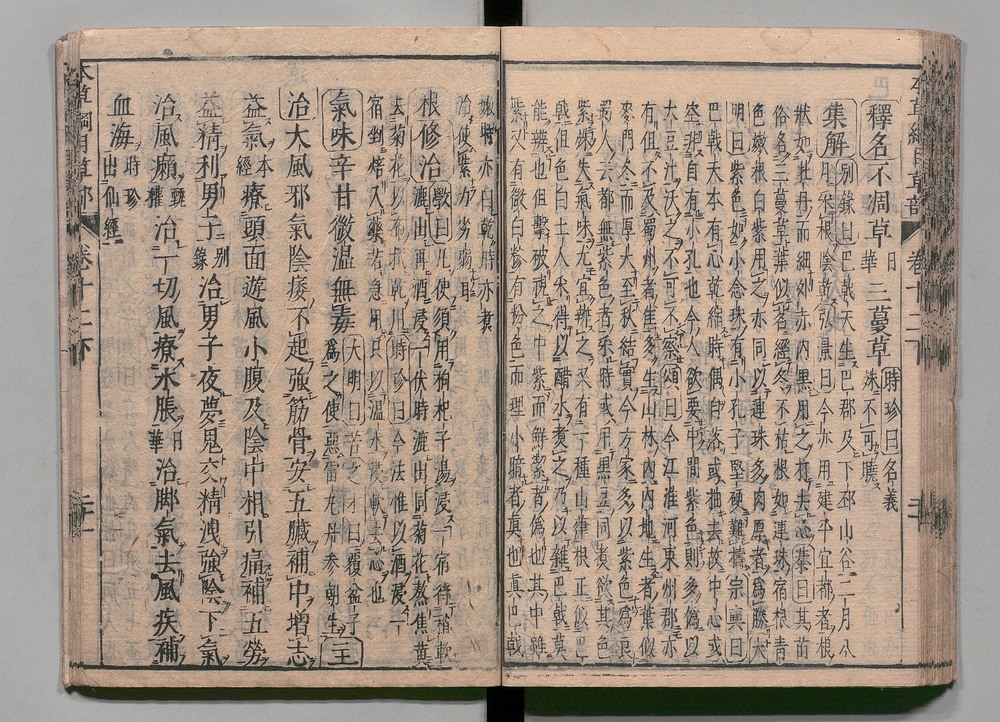 釋名不凋草 日華 三蔓草 時珍曰名義殊不可曉
集解 別錄曰巴戟天生巴郡及下邳山谷二月八
月采根陰乾弘景曰今亦用建平宜都者根
狀如牡丹而細外赤內黑用之打去心恭曰其苗
俗名三蔓草葉似茗經冬不枯根如連珠宿根青
色嫩根白紫用之亦同以連珠多肉厚者為勝大
明曰紫色如小念珠有小孔子堅硬難擣宗奭曰
巴戟天本有心乾縮時偶自落或抽去故中心或
空非自有小孔也今人欲要中間紫色則多以
大豆汁沃之不可不察頌曰今江淮河東州郡亦
有但不及蜀州者佳多生山林內內地生者葉似
麥門冬而厚大至秋結實今方家多以紫色為良
蜀人云都無紫色者采時或用黑豆同煮欲其色
紫殊失氣味尤宜辨之又有一種山葎根正似巴
戟但色白土人采得以醋水煮之乃以雜巴戟莫
能辨也但擊破視之中紫而鮮潔者偽也其中雖
紫又有微白糝有粉色而理小暗者真也真巴戟
嫩時亦白乾時亦煮
治使紫力劣弱耳
根修治 斅曰凡使須用枸杞子湯浸一宿待稍軟
漉出再酒浸一伏時漉出同菊花熬焦黃
去菊花以布拭乾用時珍曰今法惟以酒浸一
宿剉焙入藥若急用只以溫水浸軟去心也
氣味辛甘微溫無毒 大明曰苦之才曰覆盆子
為之使惡雷丸丹參朝生 主
治大風邪氣陰痿不起強筋骨安五臟補中增志
益氣 本經 療頭面遊風小腹及陰中相引痛補五勞
益精利男子 別錄 治男子夜夢鬼交精洩強陰下氣
治風癩 甄權 治一切風療水脹 日華 治脚氣去風疾補
血海 時珍出仙經
本草綱目草部 卷十二下